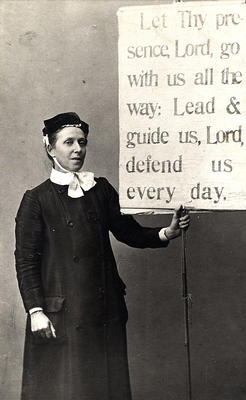 Let Thy pre-
sence, Lord, go
with us all the
way: Lead &
guide us, Lord,
defend us
every day.